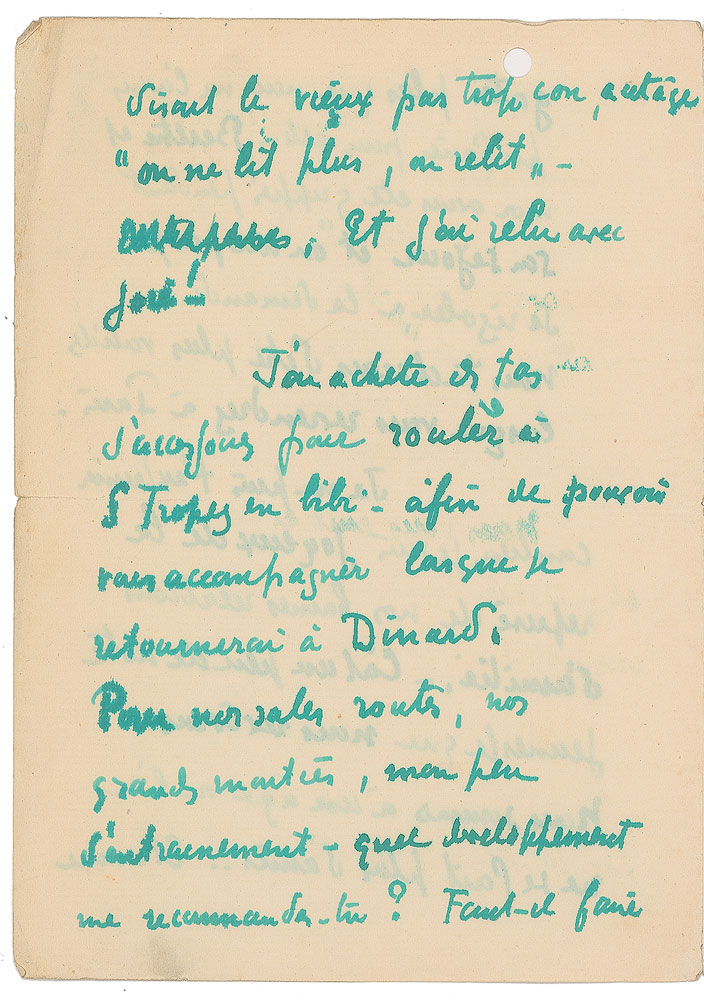 disait le vieux pas trop con, "
"on ne lit plus, on relit" -
. Et j'ai relu avec
joie!
J'en achète
pour rouler à
S Tropez en bibi - afin de pouvoir
vous accompagner lorsque je
retournerai à Dinard.
Pour nos sales routes, nos
grandes montées, mon peu
d'entrainement - quel developpement
me recommandes-tu ? Faut-il faire